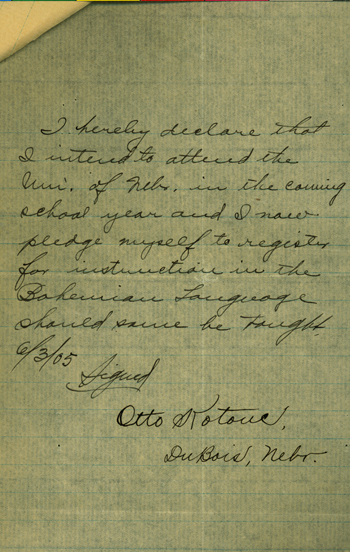 I hereby declare that
I intend to attend the
Uni. of Nebr. in the coming
school year and I now
pledge myself to register
for instruction in the
Bohemian Language
should same be taught.
6/3/05
Signed
Otto Kotouc,
DuBois, Nebr.